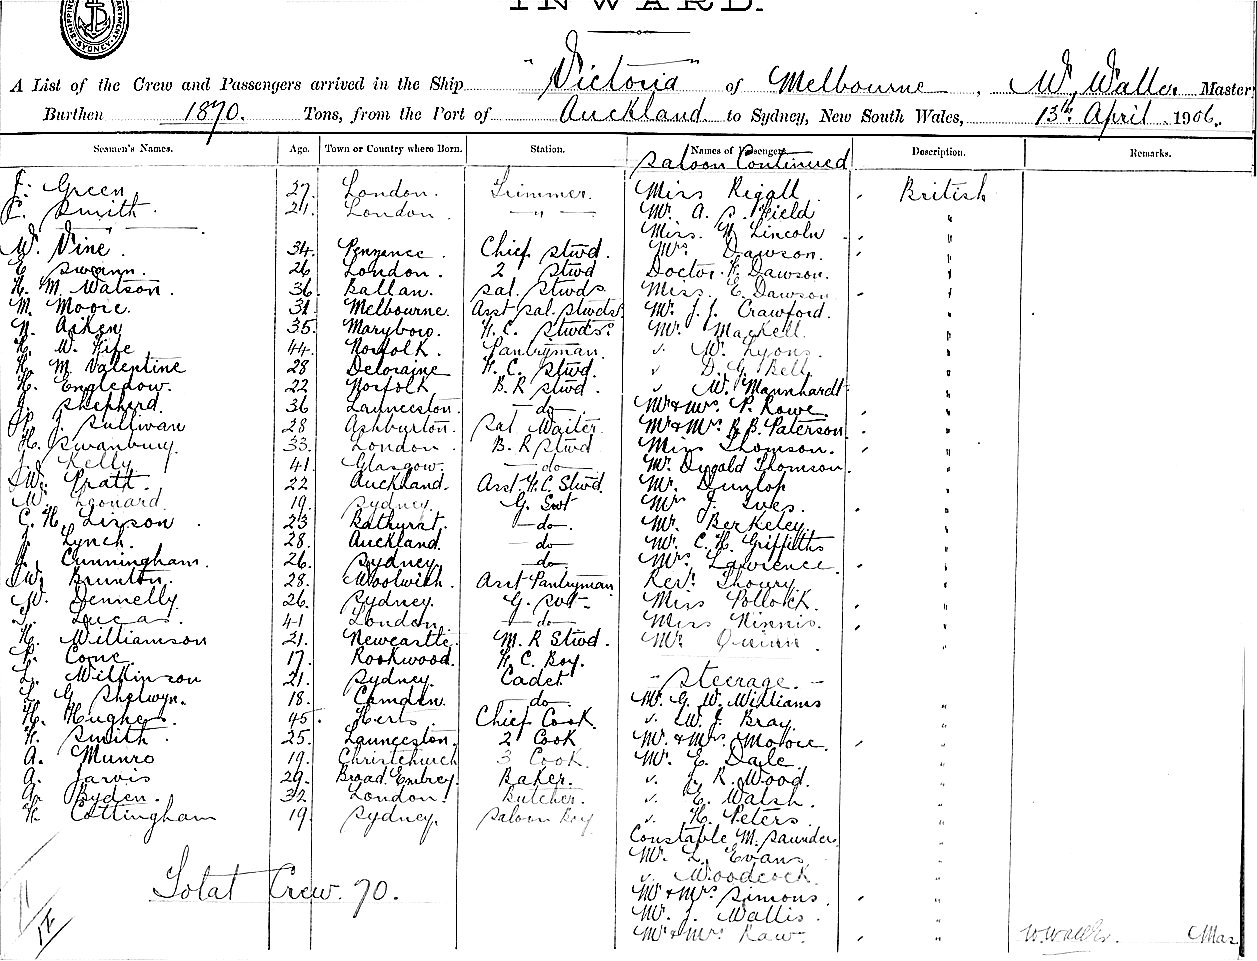 INWARD.
A List of the Crew and Passengers arrived in the Ship "Victoria" of Melbourne, W. Waller Master,
Burthen 1870. Tons, from the Port of Auckland to Sydney, New South Wales, 13th April 1906.
Seamen's Names. Age. Town or Country where Born. Station. Names of Passengers. Description. Remarks.
Saloon Continued
J. Green 27 London. Trimmer. Miss Rigall British
C. Smith. 24 London. — " — Mr. A. S. Field "
Miss. N. Lincoln "
W. Vine. 34. Penzance. Chief Stwd. Mrs Dawson. "
E. Swann. 26 London. 2 Stwd Doctor. H. Dawson. "
H. M. Watson. 36 Ballan. Sal. Stwds Miss. E. Dawson "
M. Moore. 31 Melbourne. Asst Sal. Stwds Mr. J. J. Crawford. "
N. Aitken 35. Maryboro. H. C. Stwds. Mr. Mackell. "
H. W. Fife 44. Norfolk. Pantryman. " W. Lyons. "
H. M. Valentine 28 Deloraine H. C. Stwd. " D. G. Bell "
H. Engledow. 22 Norfolk B. R Stwd. " W. Mannhardt "
J. Shepherd. 36 Launceston. — do — Mr & Mrs P. Rowe "
P. J. Sullivan 28 Ashburton. Sal Waiter. Mr & Mrs R. B. Paterson. "
H. Swanbury 33. London. B. R Stwd Miss Thomson. "
J. Kelly 41 Glasgow. — do — Mr. Dugald Thomson. "
W. Pratt. 22 Auckland. Asst. H. C. Stwd. Mr. Dunlop "
W. Leonard. 19. Sydney. G. Svt Mrs J. Ives. "
C. H. Lisson 23 Bathurst. — do — Mr. Berkeley. "
J. Lynch. 28. Auckland. — do — Mr. C. H. Griffiths "
J. Cunningham. 26. Sydney. — do — Mrs Lawrence. "
W. Brunton. 28. Woolwich. Asst Pantryman Revd. Thoury "
W. Dennelly 26 Sydney. G. Svt - Miss Pollock. "
T. Lucas. 41 London. — do — Miss Ninnis. "
H. Williamson 21. Newcastle. M. R Stwd. Mr Quinn. "
P. Cone 17. Rookwood. H. C. Boy.
L. Wilkinson 21. Sydney. Cadet - Steerage. -
L. G. Shelwyn. 18. Camden. — do — Mr. G. W. Williams "
H. Hughes. 45. Herts. Chief Cook " W. J. Bray "
H. Smith 25. Launceston. 2 Cook Mr. & Mrs Moore. "
A. Munro 19. Christchurch 3 Cook. Mr. E. Dale. "
A. Jarvis 29. Broad Embrey. Baker. " J. R. Wood. "
A. Byden. 32 London. Butcher. " E. Walsh. "
H. Cottingham 19 Sydney. Saloon Boy " H. Peters. "
Constable M. Saunders "
Mr. L. Evans. "
Total Crew. 70. " Woodcock. "
Mr & Mrs Simons. "
Mr. J. Wallis. "
Mr & Mrs Kaw. " W. Waller. Mas